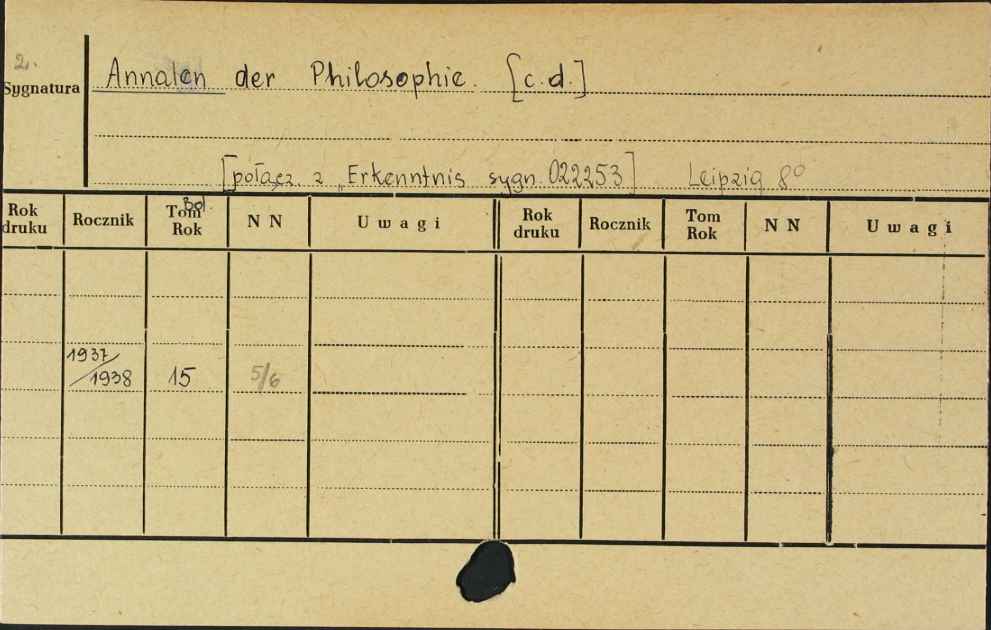 2.
Sygnatura
Annalen der Philosophie. [c.d.]
[połącz. z „Erkenntnis sygn. 022253] Leipzig 8°
Rok druku Rocznik Tom Bd. Rok N N Uwagi Rok druku Rocznik Tom Rok N N Uwagi
1937/
1938 15 5/6